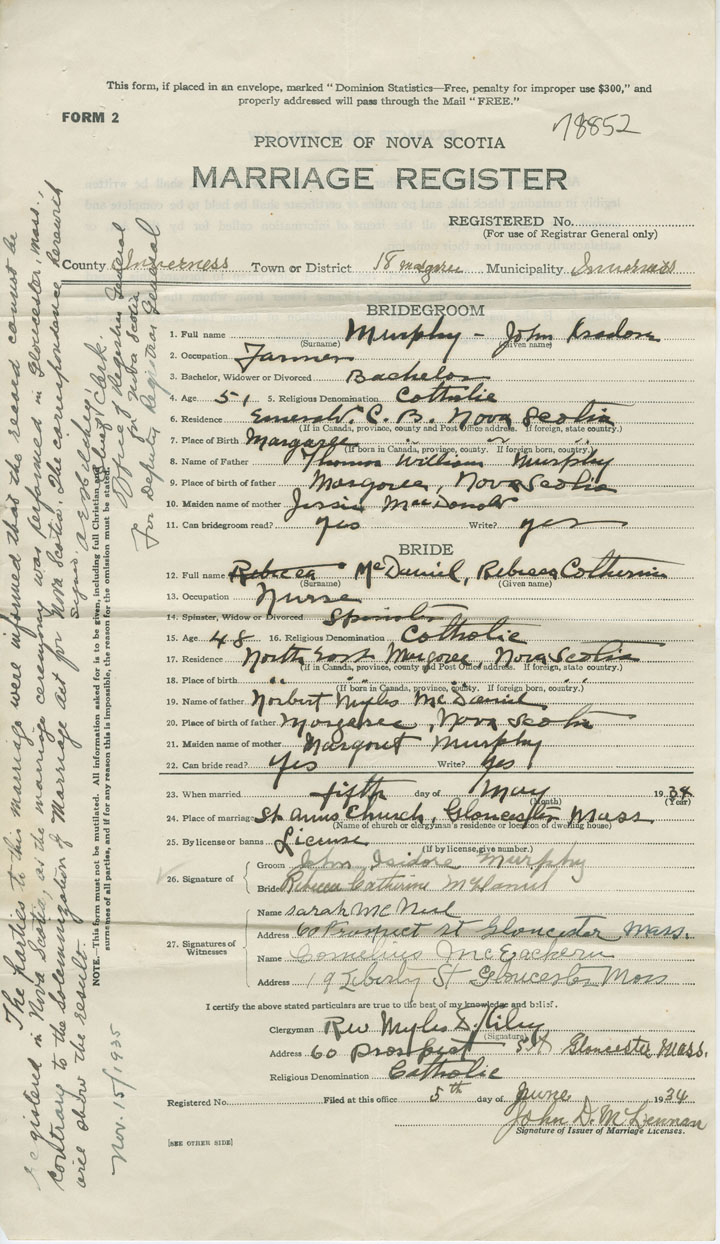 This form, if placed in an envelope, marked "Dominion Statistics—Free, penalty for improper use $300," and
properly addressed will pass through the Mail "FREE."
FORM 2
78852
PROVINCE OF NOVA SCOTIA
MARRIAGE REGISTER
REGISTERED No.
(For use of Registrar General only)
County Inverness Town or District 18 Margaree Municipality Inverness
BRIDEGROOM
1. Full name Murphy - John Isadore
(Surname) (Given name)
2. Occupation Farmer
3. Bachelor, Widower or Divorced Bachelor
4. Age 51 5. Religious Denomination Catholic
6. Residence Emerald C. B. Nova Scotia
(If in Canada, province, county and Post Office address. If foreign, state country.)
7. Place of Birth Margaree
(If born in Canada, province, county. If foreign born, country.)
8. Name of Father Thomas William Murphy
9. Place of birth of father Margaree, Nova Scotia
10. Maiden name of mother Jessie MacDonald
11. Can bridegroom read? yes Write? yes
BRIDE
12. Full name Rebecca McDaniel, Rebecca Catherine
(Surname) (Given name)
13. Occupation Nurse
14. Spinster, Widow or Divorced Spinster
15. Age 48 16. Religious Denomination Catholic
17. Residence North East Margaree, Nova Scotia
(If in Canada, province, county and Post Office address. If foreign, state country.)
18. Place of birth " " " "
(If born in Canada, province, county. If foreign born, country.)
19. Name of father Norbert Myles McDaniel
20. Place of birth of father Margaree, Nova Scotia
21. Maiden name of mother Margaret Murphy
22. Can bride read? Yes Write? Yes
23. When married fifth day of May 1934
(Month) (Year)
24. Place of marriage St Anns Church, Gloucester Mass
(Name of church or clergyman's residence or location of dwelling house)
25. By license or banns License
(If by license, give number.)
26. Signature of
Groom John Isidore Murphy
Bride Rebecca Catherine McDaniel
27. Signatures of Witnesses
Name Sarah McNeil
Address 60 Prospect st Gloucester Mass.
Name Cornelius McEachern
Address 19 Liberty St Gloucester Mass
I certify the above stated particulars are true to the best of my knowledge and belief.
Clergyman Rev Myles D. Kiley
(Signature)
Address 60 Prospect St Gloucester Mass.
Religious Denomination Catholic
Registered No. Filed at this office 5th day of June 1934
John D. McLennan
Signature of Issuer of Marriage Licenses.
[SEE OTHER SIDE]
NOTE.—This form must not be mutilated. All information asked for is to be given, including full Christian and
surnames of all parties, and if for any reason this is impossible, the reason for the omission must be stated.
The parties to this marriage were informed that the record cannot be
registered in Nova Scotia, as the marriage ceremony was performed in Gloucester, Mass.,
contrary to the Solemnization of Marriage act for Nova Scotia. The correspondence herewith
will show the result.
Nov. 15/1935
Chief Clerk.
Office of Registrar General
for Nova Scotia
For Deputy Registrar General